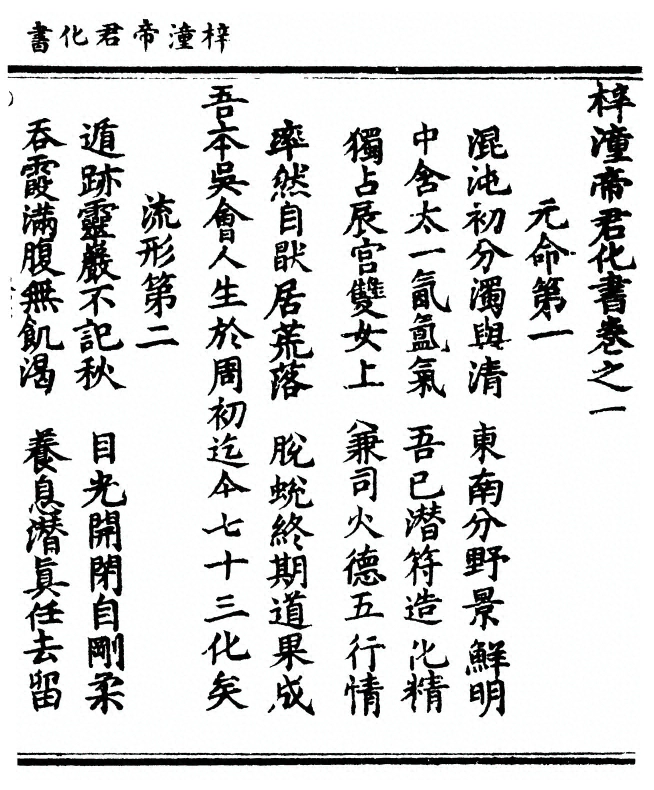 書化君帝潼梓
梓潼帝君化書卷之一
元命第一
混沌初分濁與清 東南分野景鮮明
中含太一氤氳氣 吾已潛符造化精
獨占辰宮雙女上 兼司火德五行情
率然自猒居荒落 脫蛻終期道果成
吾本吳會人生於周初迄今七十三化矣
流形第二
遁跡靈巖不記秋 目光開閉自剛柔
吞霞滿腹無飢渴 養息潛眞任去留